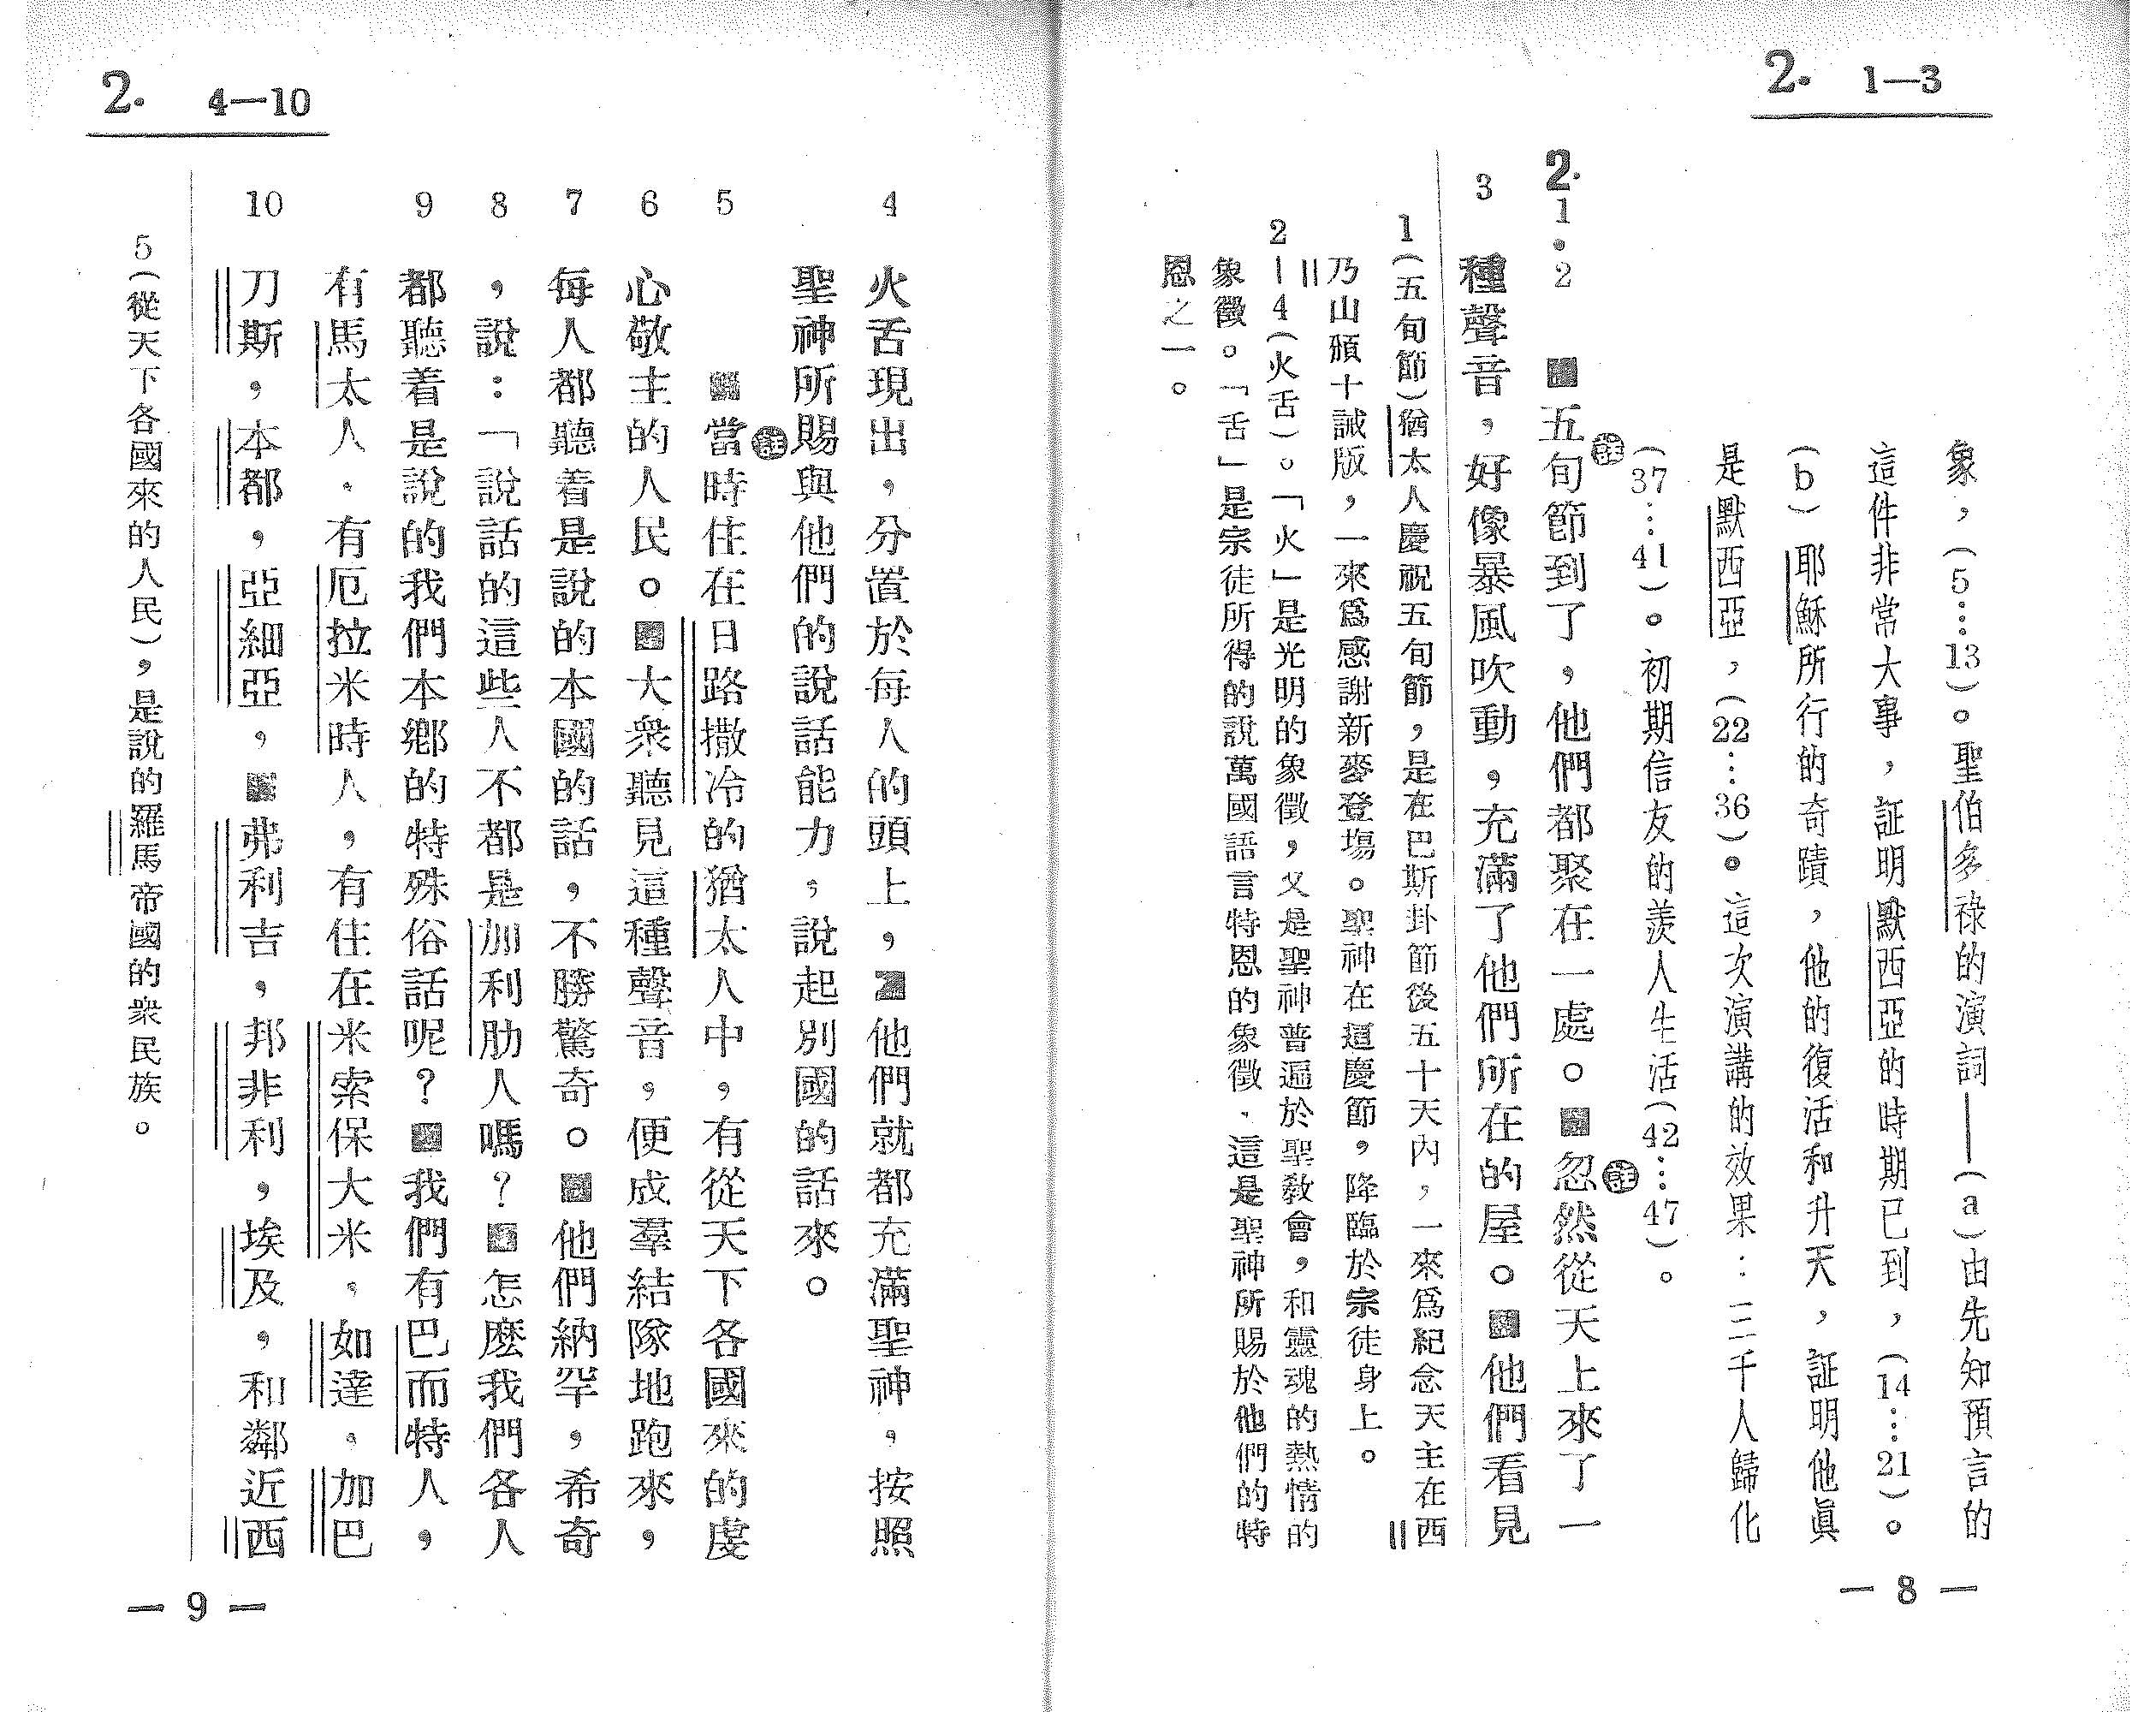 2. 1—3
象，（5…13）。聖伯多祿的演詞——（a）由先知預言的
這件非常大事，証明默西亞的時期已到，（14…21）。
（b）耶穌所行的奇蹟，他的復活和升天，証明他眞
是默西亞，（22…36）。這次演講的效果：三千人歸化
（37…41）。初期信友的羨人生活（42…47）。
2.1.2 五旬節到了，他們都聚在一處。註忽然從天上來了一
3 種聲音，好像暴風吹動，充滿了他們所在的屋。他們看見
1（五旬節）猶太人慶祝五旬節，是在巴斯卦節後五十天內，一來爲紀念天主在西
乃山頒十誡版，一來爲感謝新麥登塲。聖神在這慶節，降臨於宗徒身上。
2—4（火舌）。「火」是光明的象徵，又是聖神普遍於聖敎會，和靈魂的熱情的
象徵。「舌」是宗徒所得的說萬國語言特恩的象徵．這是聖神所賜於他們的特
恩之一。
— 8 —
2. 4—10
4 火舌現出，分置於每人的頭上，他們就都充滿聖神，按照
聖神所賜與他們的說話能力，說起別國的話來。
5 註當時住在日路撒冷的猶太人中，有從天下各國來的虔
6 心敬主的人民。大衆聽見這種聲音，便成羣結隊地跑來，
7 每人都聽着是說的本國的話，不勝驚奇。他們納罕，希奇
8 ，說：「說話的這些人不都是加利肋人嗎？怎麽我們各人
9 都聽着是說的我們本鄕的特殊俗話呢？我們有巴而特人，
有馬太人．有厄拉米時人，有住在米索保大米，如達，加巴
10 刀斯，本都，亞細亞，弗利吉，邦非利，埃及，和鄰近西
5（從天下各國來的人民），是說的羅馬帝國的衆民族。
— 9 —